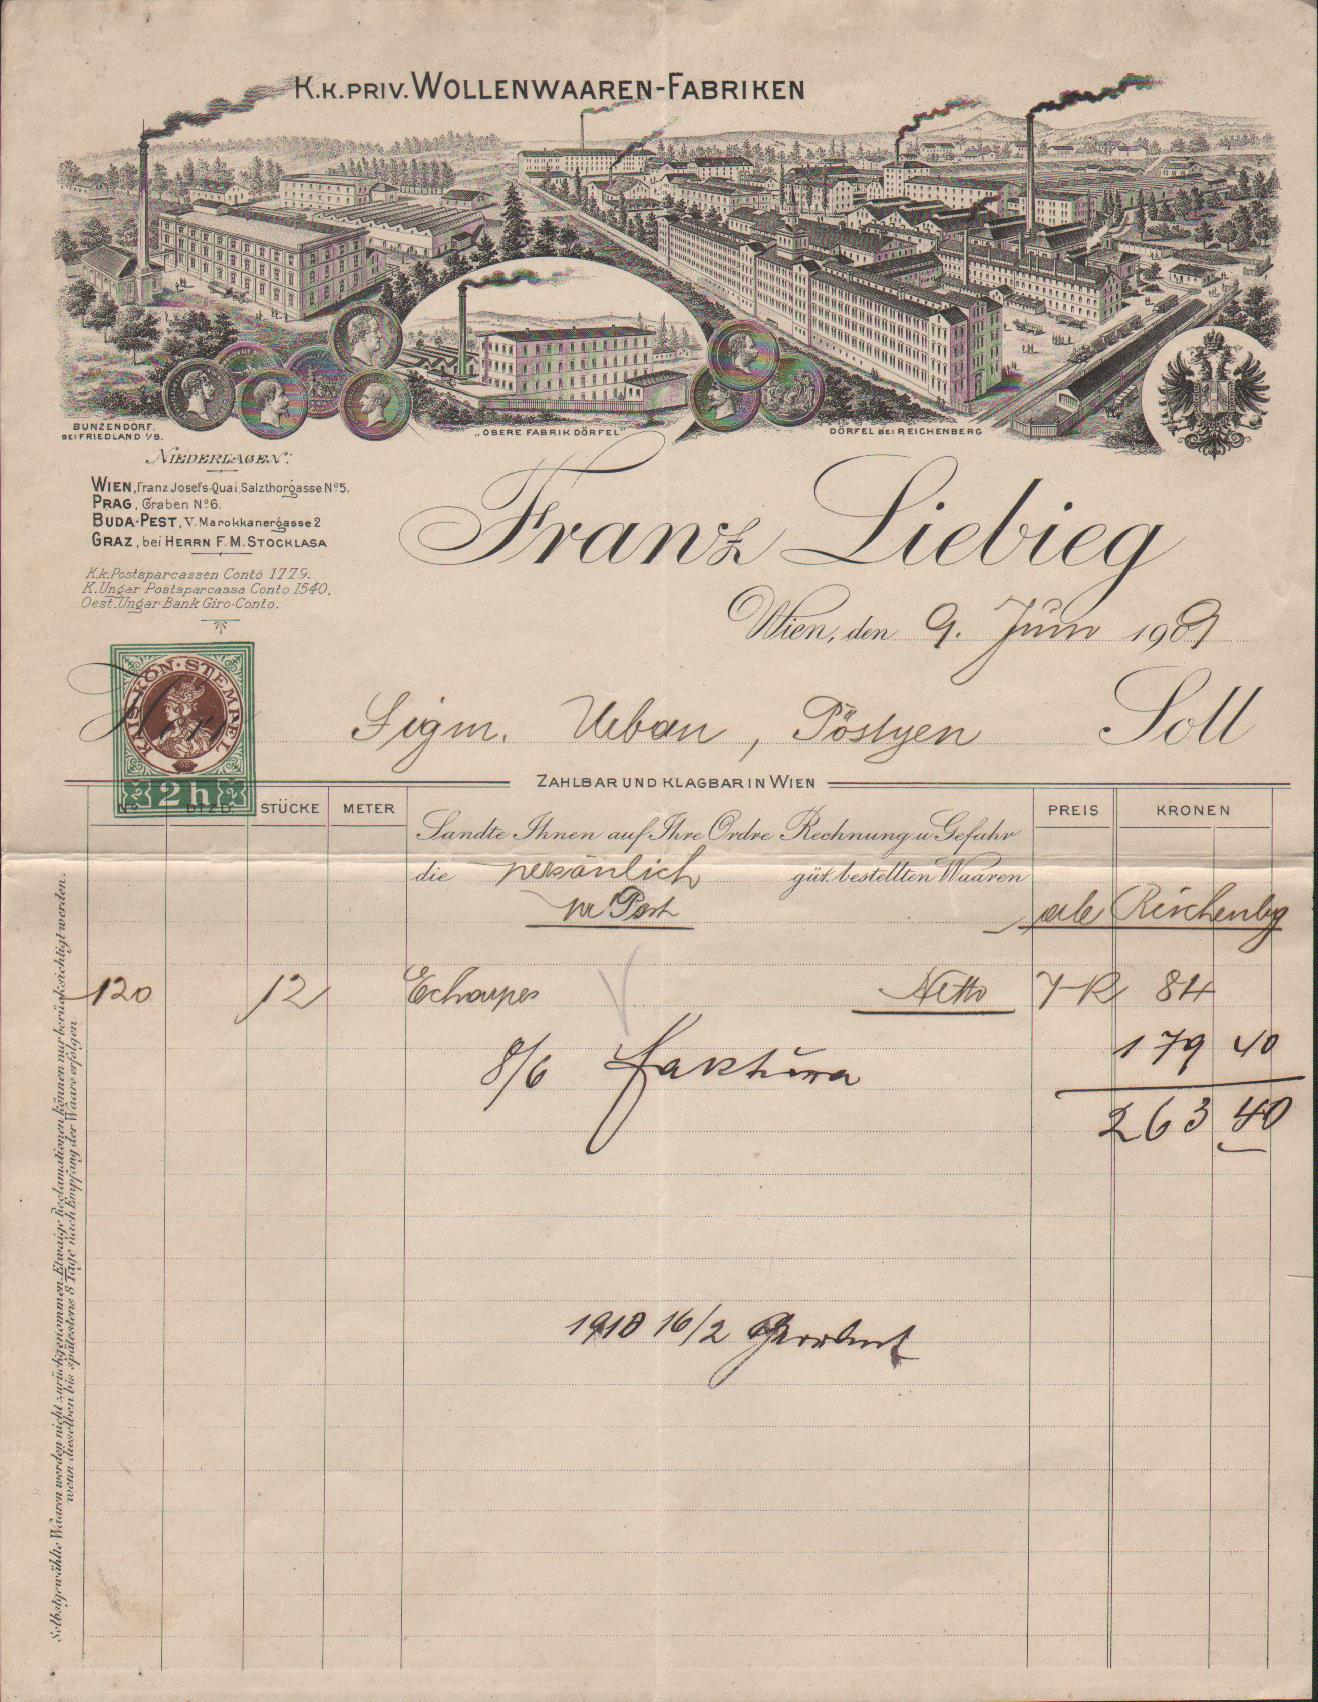 K.K. PRIV. WOLLENWAAREN-FABRIKEN
BUNZENDORF.
BEI FRIEDLAND I/B.
„OBERE FABRIK DÖRFEL"
DÖRFEL BEI REICHENBERG
NIEDERLAGEN:
WIEN, Franz Josefs-Quai, Salzthorgasse No 5.
PRAG, Graben No 6.
BUDA-PEST, V. Marokkanergasse 2
GRAZ, bei HERRN F. M. STOCKLASA
K.k. Postsparcassen Conto 1779.
K. Ungar Postsparcassa Conto 1540.
Oest. Ungar Bank Giro-Conto.
Franz Liebieg
Wien, den 9. Juni 1909
KAIS·KÖN·STEMPEL
2 h
Sigm. Urban, Pöstyen
Soll
ZAHLBAR UND KLAGBAR IN WIEN
No DTZD. STÜCKE METER PREIS KRONEN
Sandte Ihnen auf Ihre Ordre Rechnung u Gefahr
die persönlich güt. bestellten Waaren
pr Post
Reichenbg
120 12 Echarpes Netto 7-K 84
8/6 Faktura 179 40
263 40
1910 16/2
Selbstgewählte Waaren werden nicht zurückgenommen. Etwaige Reclamationen können nur berücksichtigt werden,
wenn dieselben bis spätestens 8 Tage nach Empfang der Waare erfolgen